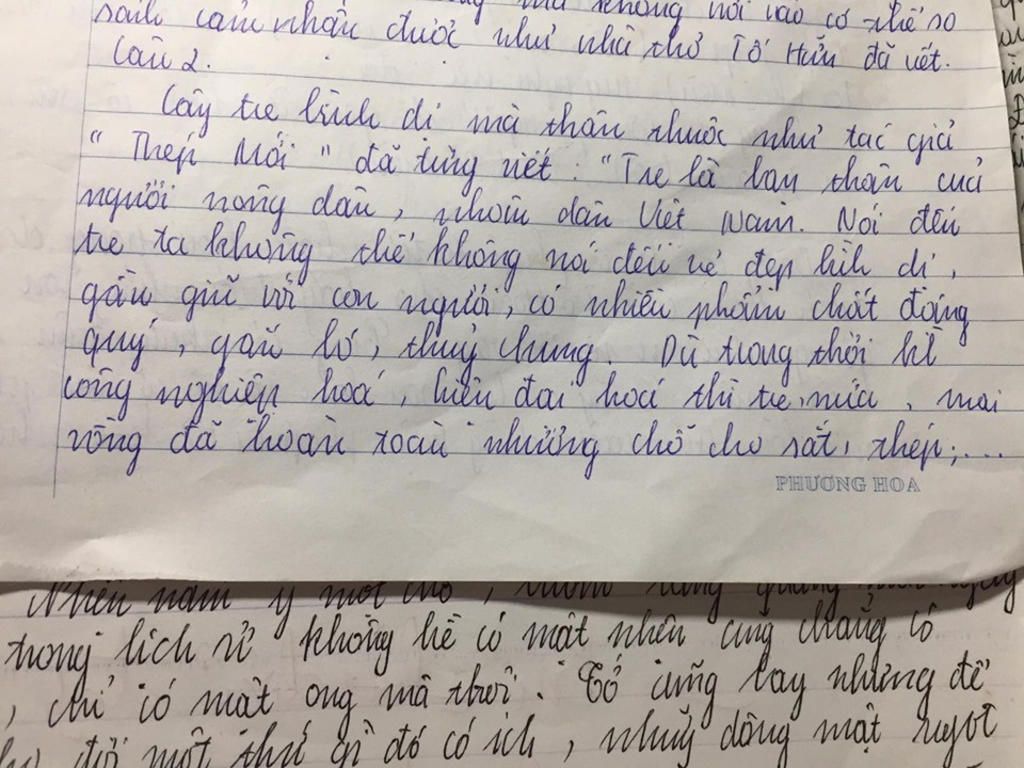 không nói vào có thể so
sánh cảm nhận được như nhà thơ Tố Hữu đã viết.
Câu 2.
Cây tre bình dị mà thân thuộc như tác giả
"Thép Mới" đã từng viết: "Tre là bạn thân của
người nông dân, nhân dân Việt Nam. Nói đến
tre ta không thể không nói đến vẻ đẹp bình dị,
gần giũ với con người, có nhiều phẩm chất đáng
quý, gắn bó, thuỷ chung. Dù trong thời kì
công nghiệp hoá, hiện đại hoá thì tre, nứa, mai
vồng đã hoàn toàn nhường chỗ cho sắt, thép;...
PHƯƠNG HOA
Nhiên năm ý một
trong lịch sử không hề có mật nhên cũng chẳng có
, chỉ có mật ong mà thôi. Gớ cũng lay nhưng để
đời một thứ gì đó có ích, những dòng mật ngọt